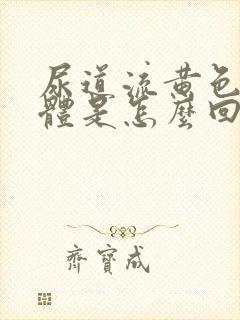 尿道流黄色
體是怎麼回
齊寶成